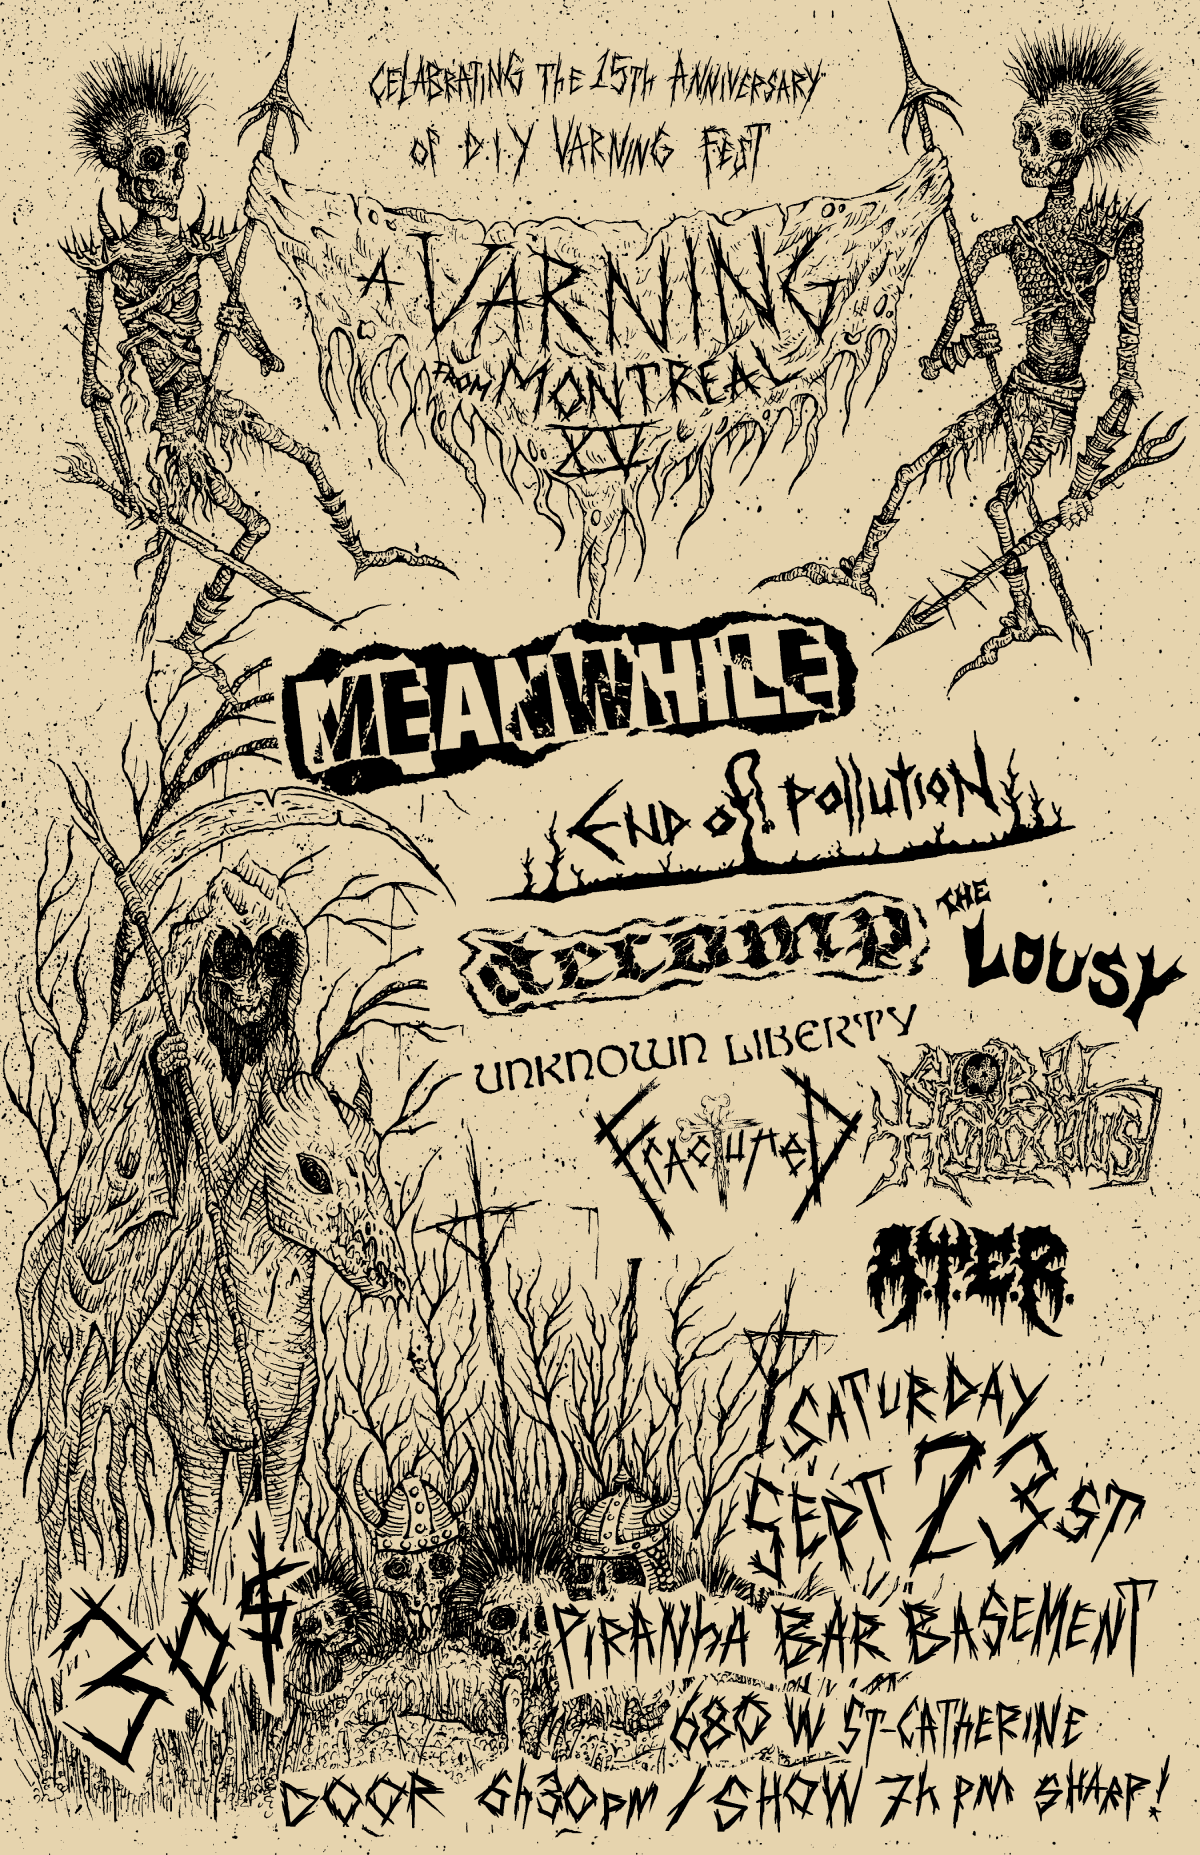 CELABRATING The 15Th ANNIVERSARY
OF D.I.Y VARNING FEST
A VARNING
FROM MONTREAL
XV
MEANWHILE
END of POllUTION
decomp
THE LOUSY
UNKNOWN LIBERTY
FracTureD
GLOBAL HOLOCAUST
A.T.E.R.
SATURDAY
SEPT 23ST
30$
PiRANhA BAR BASEMENT
680 W ST-CATHERINE
DOOR 6h30pm / SHOW 7h PM SHARP!